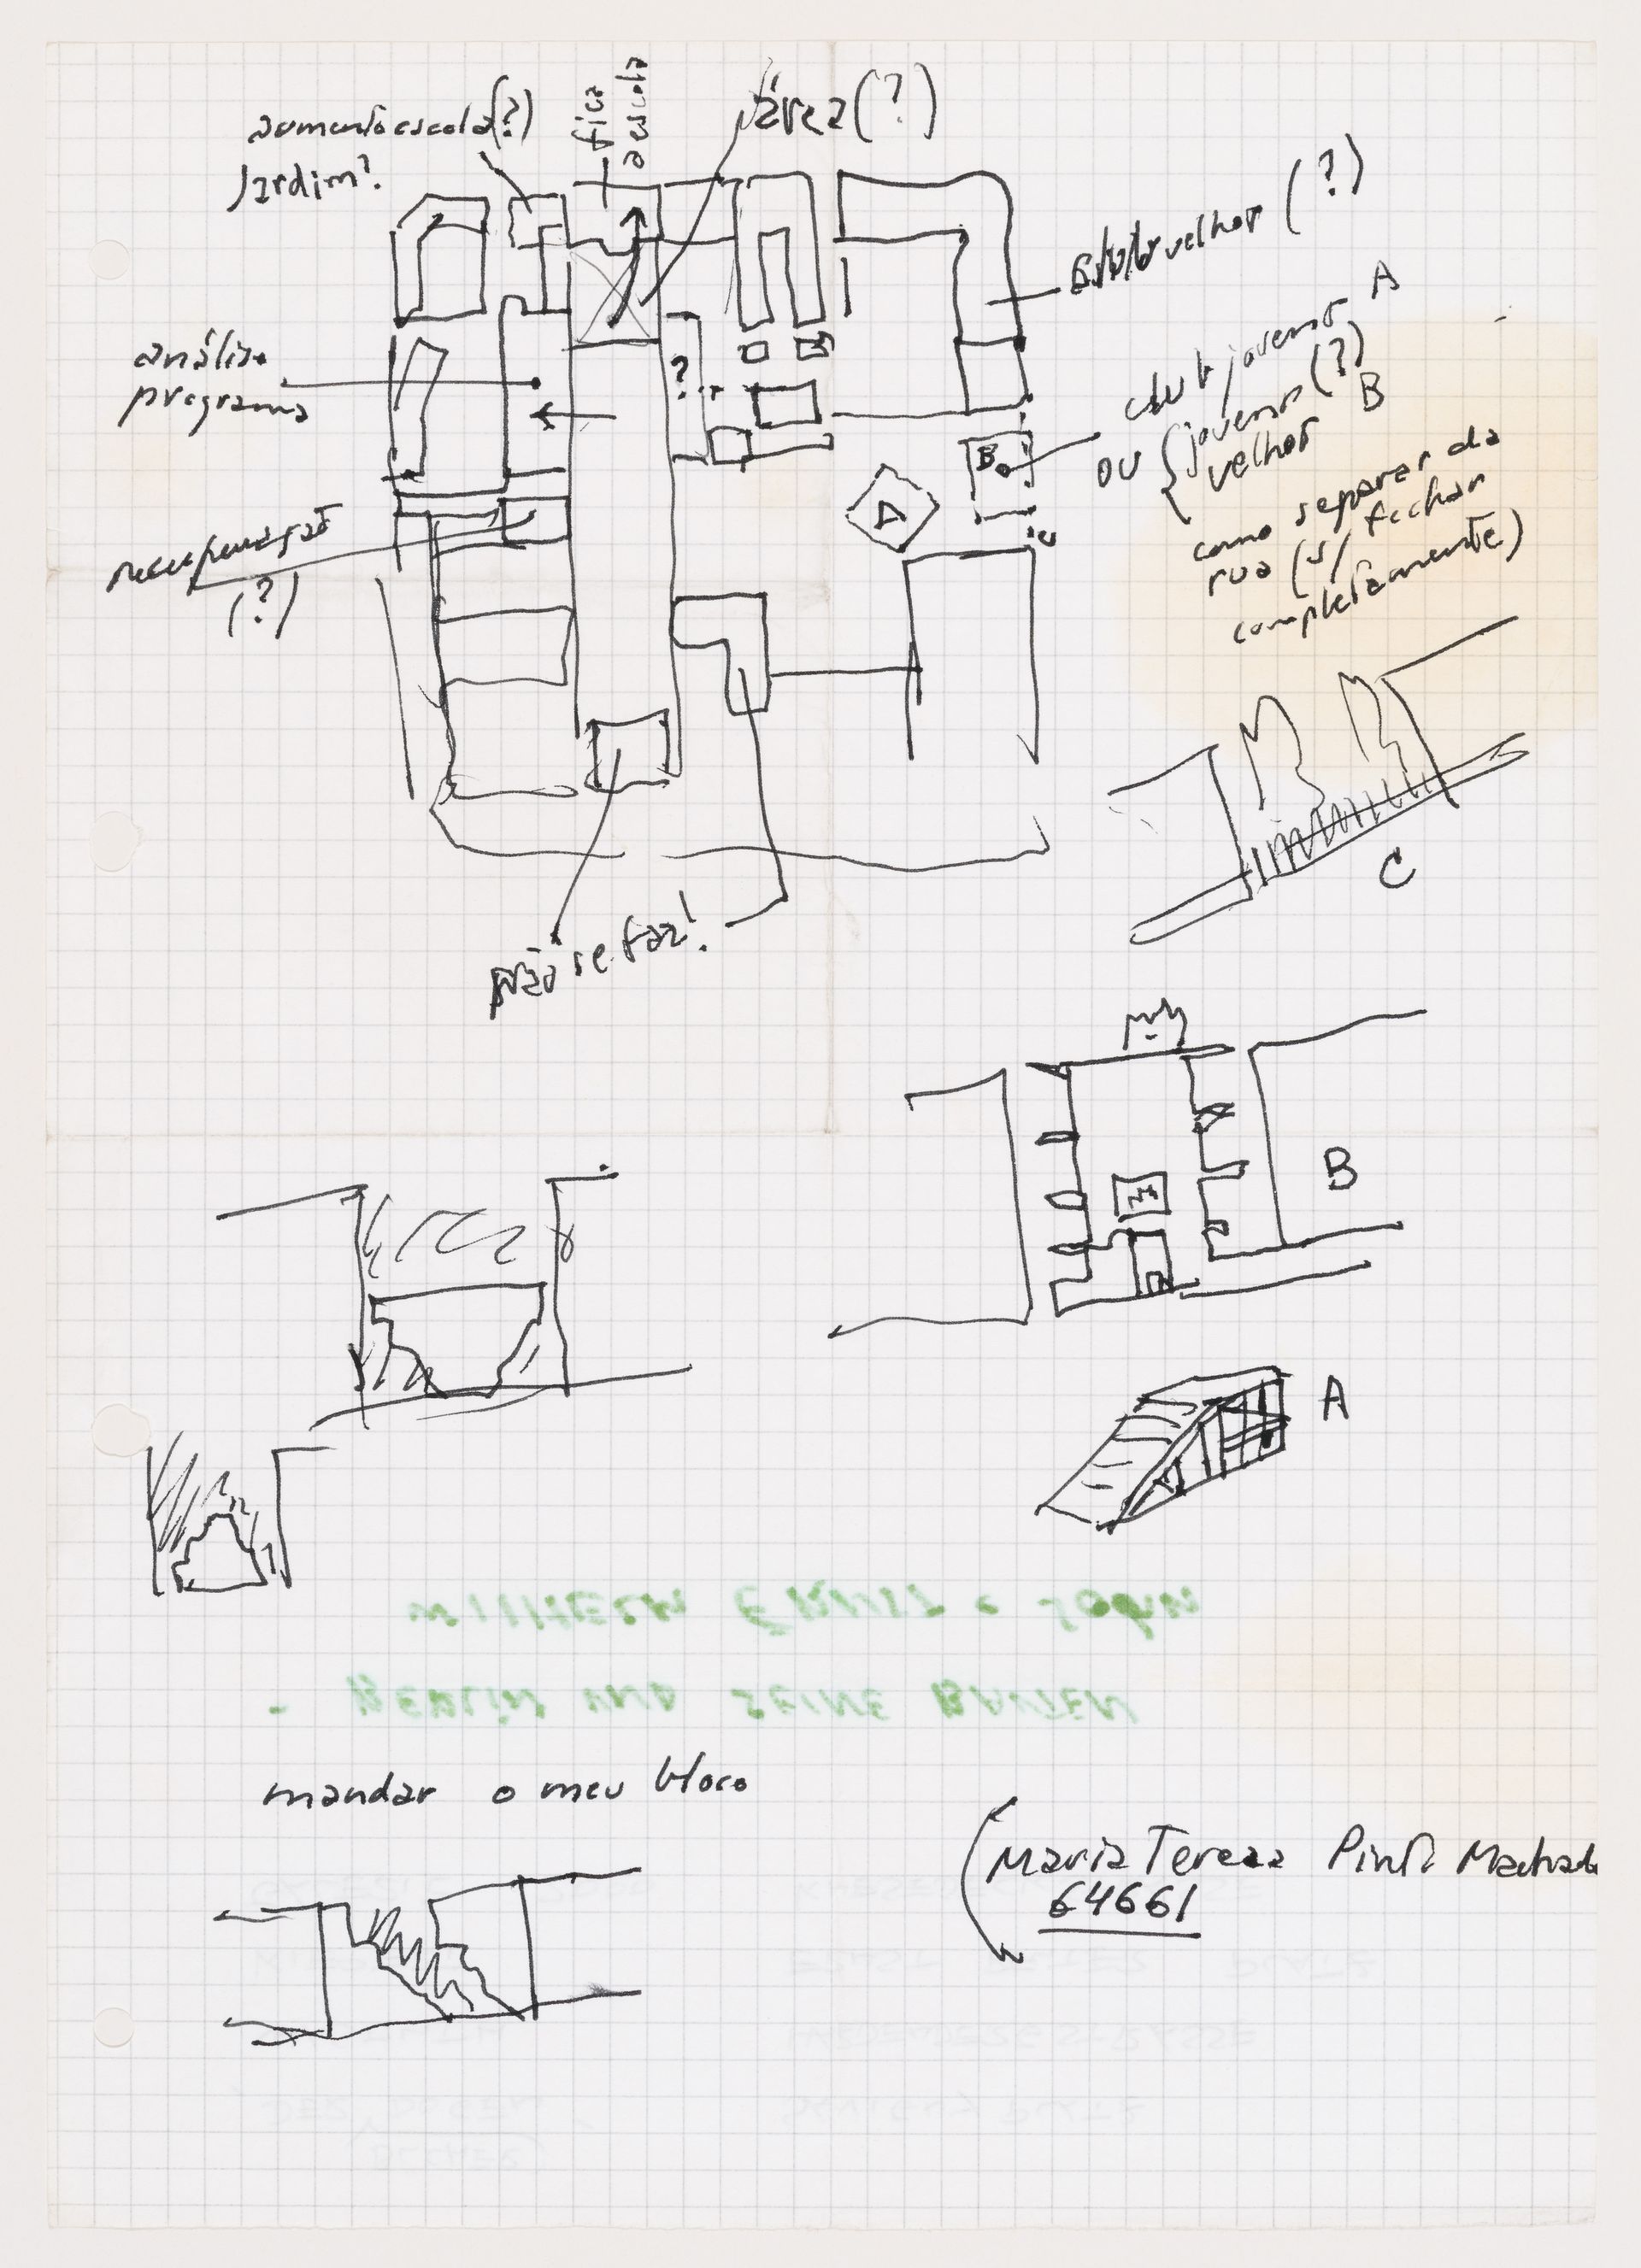 aumento escola (?)
Jardim?
fica
a escola
área (?)
velhos (?)
análise
programa
?
club jovens A
ou { jovens (?)
velhos B
B
A
como separar da
rua (s/ fechar
completamente)
recuperação
(?)
C
não se faz!
B
A
WILHELM ERNST & SOHN
- BERLIN UND SEINE BAUTEN
mandar o meu bloco
(Maria Tereza Pinto Machado
64661